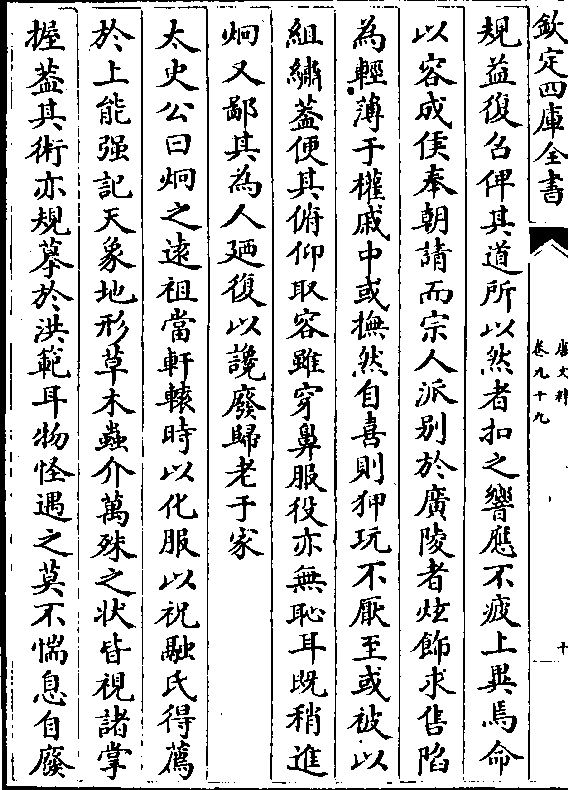 欽定四庫全書
唐文粹
卷九十九
十
規益復召俾其道所以然者扣之響應不疲上異焉命
以容成侯奉朝請而宗人派别於廣陵者炫飾求售陷
為輕薄于權戚中或撫然自喜則狎玩不厭至或被以
組繡蓋便其俯仰取容雖穿鼻服役亦無恥耳既稍進
炯又鄙其為人廼復以讒廢歸老于家
太史公曰炯之逺祖當軒轅時以化服以祝融氏得薦
於上能强記天象地形草木蟲介萬殊之状皆視諸掌
握蓋其術亦規摹於洪範耳物怪遇之莫不惴息自廢